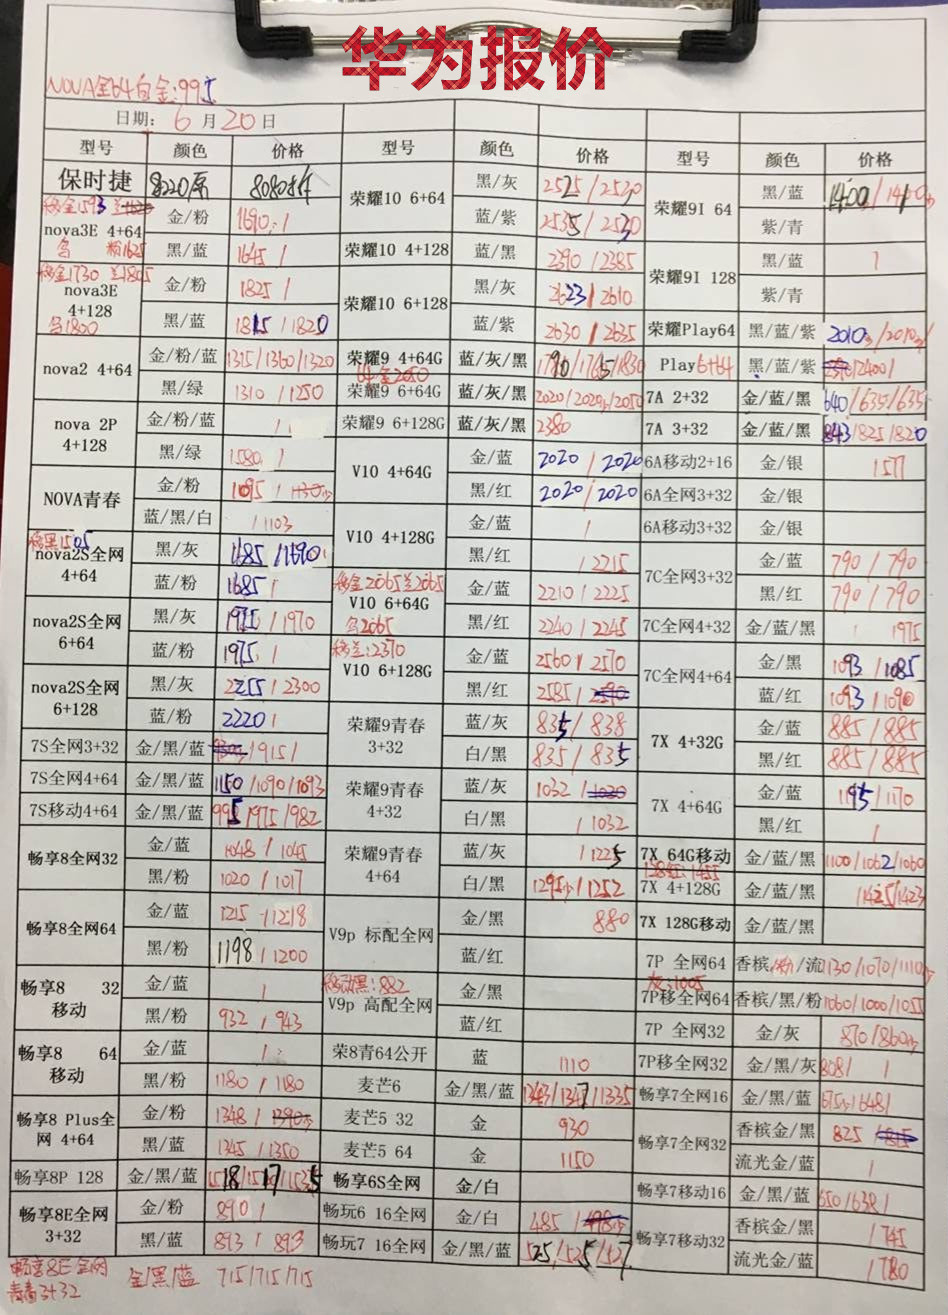 华为报价
NOVA全64白金:995
日期: 6月20日
型号 颜色 价格 型号 颜色 价格 型号 颜色 价格
保时捷 8220原 荣耀10 6+64 黑/灰 2525/2530 荣耀9I 64 黑/蓝
nova3E 4+64 金/粉 1690 / 蓝/紫 2535/2530 紫/青
黑/蓝 1645 / 荣耀10 4+128 蓝/黑 2390/2385 荣耀9I 128 黑/蓝 /
移金1730 兰1805
nova3E 4+128 金/粉 1825 / 荣耀10 6+128 黑/灰 2623/2610 紫/青
含1800 黑/蓝 1815/1820 蓝/紫 2630/2635 荣耀Play64 黑/蓝/紫
nova2 4+64 金/粉/蓝 1315/1360/1320 荣耀9 4+64G 蓝/灰/黑 Play6+64 黑/蓝/紫 2400/
64金2050
黑/绿 1310/1250 荣耀9 6+64G 蓝/灰/黑 7A 2+32 金/蓝/黑 640/635/635
nova 2P 4+128 金/粉/蓝 / 荣耀9 6+128G 蓝/灰/黑 2380 7A 3+32 金/蓝/黑 843/825/820
黑/绿 1580 / V10 4+64G 金/蓝 2020/2020 6A移动2+16 金/银 1577
NOVA青春 金/粉 1095 / 黑/红 2020/2020 6A全网3+32 金/银
蓝/黑/白 /1103 V10 4+128G 金/蓝 / 6A移动3+32 金/银
移黑1505
nova2S全网 4+64 黑/灰 1685/1690 黑/红 /2215 7C全网3+32 金/蓝 790/790
移金2065兰2065
蓝/粉 1685 / V10 6+64G 金/蓝 2210/2225 黑/红 790/790
含2065
nova2S全网 6+64 黑/灰 1975/1970 黑/红 2240/2245 7C全网4+32 金/蓝/黑 / 1975
移兰:2370
蓝/粉 1975 / V10 6+128G 金/蓝 2560/2570 7C全网4+64 金/黑 1093/1085
nova2S全网 6+128 黑/灰 2255/2300 黑/红 2585/ 蓝/红 1093/1090
蓝/粉 2220/ 荣耀9青春 3+32 蓝/灰 835/838 7X 4+32G 金/蓝 885/885
7S全网3+32 金/黑/蓝 /915/ 白/黑 835/835 黑/红 885/885
7S全网4+64 金/黑/蓝 1150/1090/1093 荣耀9青春 4+32 蓝/灰 1032/ 7X 4+64G 金/蓝 1195/1170
7S移动4+64 金/黑/蓝 995/975/982 白/黑 /1032 黑/红 /
畅享8全网32 金/蓝 1048/1045 荣耀9青春 4+64 蓝/灰 /1225 7X 64G移动 金/蓝/黑 1100/1062/1060
128红:1455
黑/粉 1020/1017 白/黑 /1252 7X 4+128G 金/蓝/黑 /1425/1423
畅享8全网64 金/蓝 1215/1218 V9p 标配全网 金/黑 880 7X 128G移动 金/蓝/黑
黑/粉 1198/1200 蓝/红 7P 全网64 香槟/粉/流 1130/1070/1110
移动黑:882 灰:1005
畅享8 32 移动 金/蓝 / V9p 高配全网 金/黑 7P移全网64 香槟/黑/粉 1060/1000/1055
黑/粉 932/943 蓝/红 7P 全网32 金/灰
畅享8 64 移动 金/蓝 / 荣8青64公开 蓝 1110 7P移全网32 金/黑/灰 808/ /
黑/粉 1180/1180 麦芒6 金/黑/蓝 1343/1347/1335 畅享7全网16 金/黑/蓝
畅享8 Plus全网 4+64 金/粉 1348/ 麦芒5 32 金 930 畅享7全网32 香槟金/黑 825/
黑/蓝 1345/1350 麦芒5 64 金 1150 流光金/蓝 /
畅享8P 128 金/黑/蓝 畅享6S全网 金/白 畅享7移动16 金/黑/蓝 650/638/
畅享8E全网 3+32 金/粉 890/ 畅玩6 16全网 金/白 485/ 畅享7移动32 香槟金/黑 /745
黑/蓝 893/893 畅玩7 16全网 金/黑/蓝 525/525/527 流光金/蓝 /780
畅享8E全网
青春3+32 金/黑/蓝 715/715/715